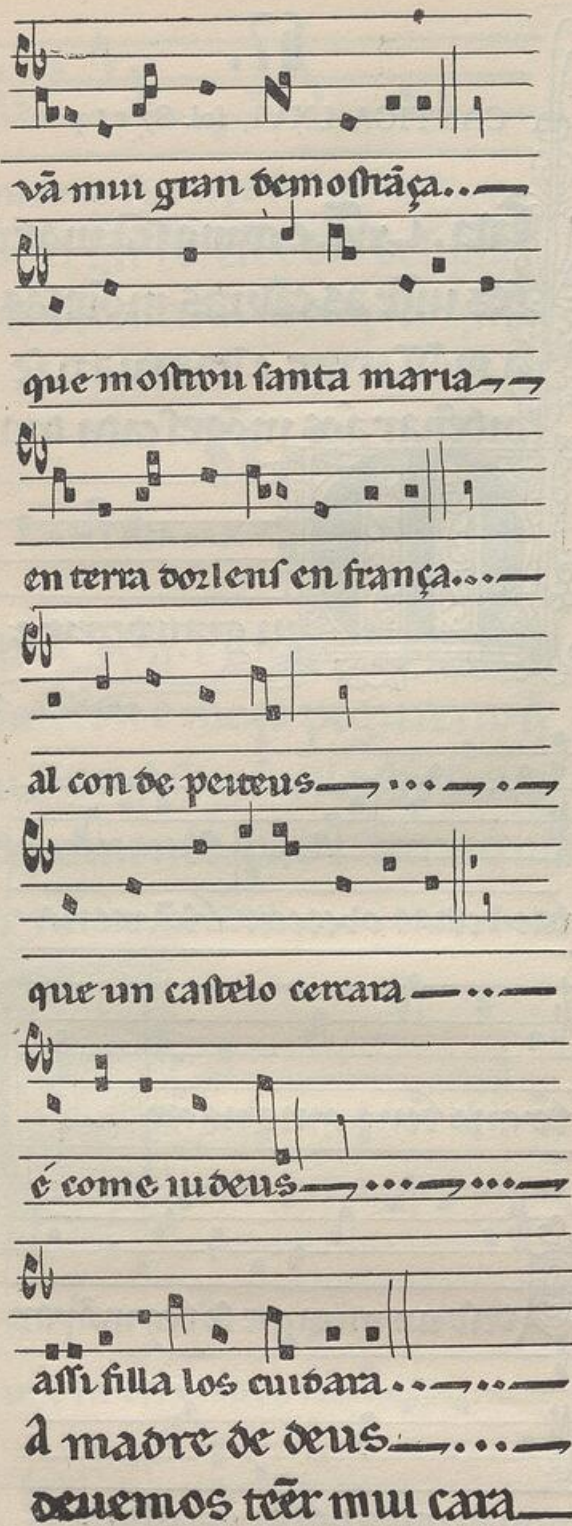 vã mui gran demostrãça
que mostrou santa maria
en terra dorlens en frança
al con de peiteus
que un castelo cercara
é come iudeus
assi filla los cuidara
A madre de deus
deuemos tẽer mui cara